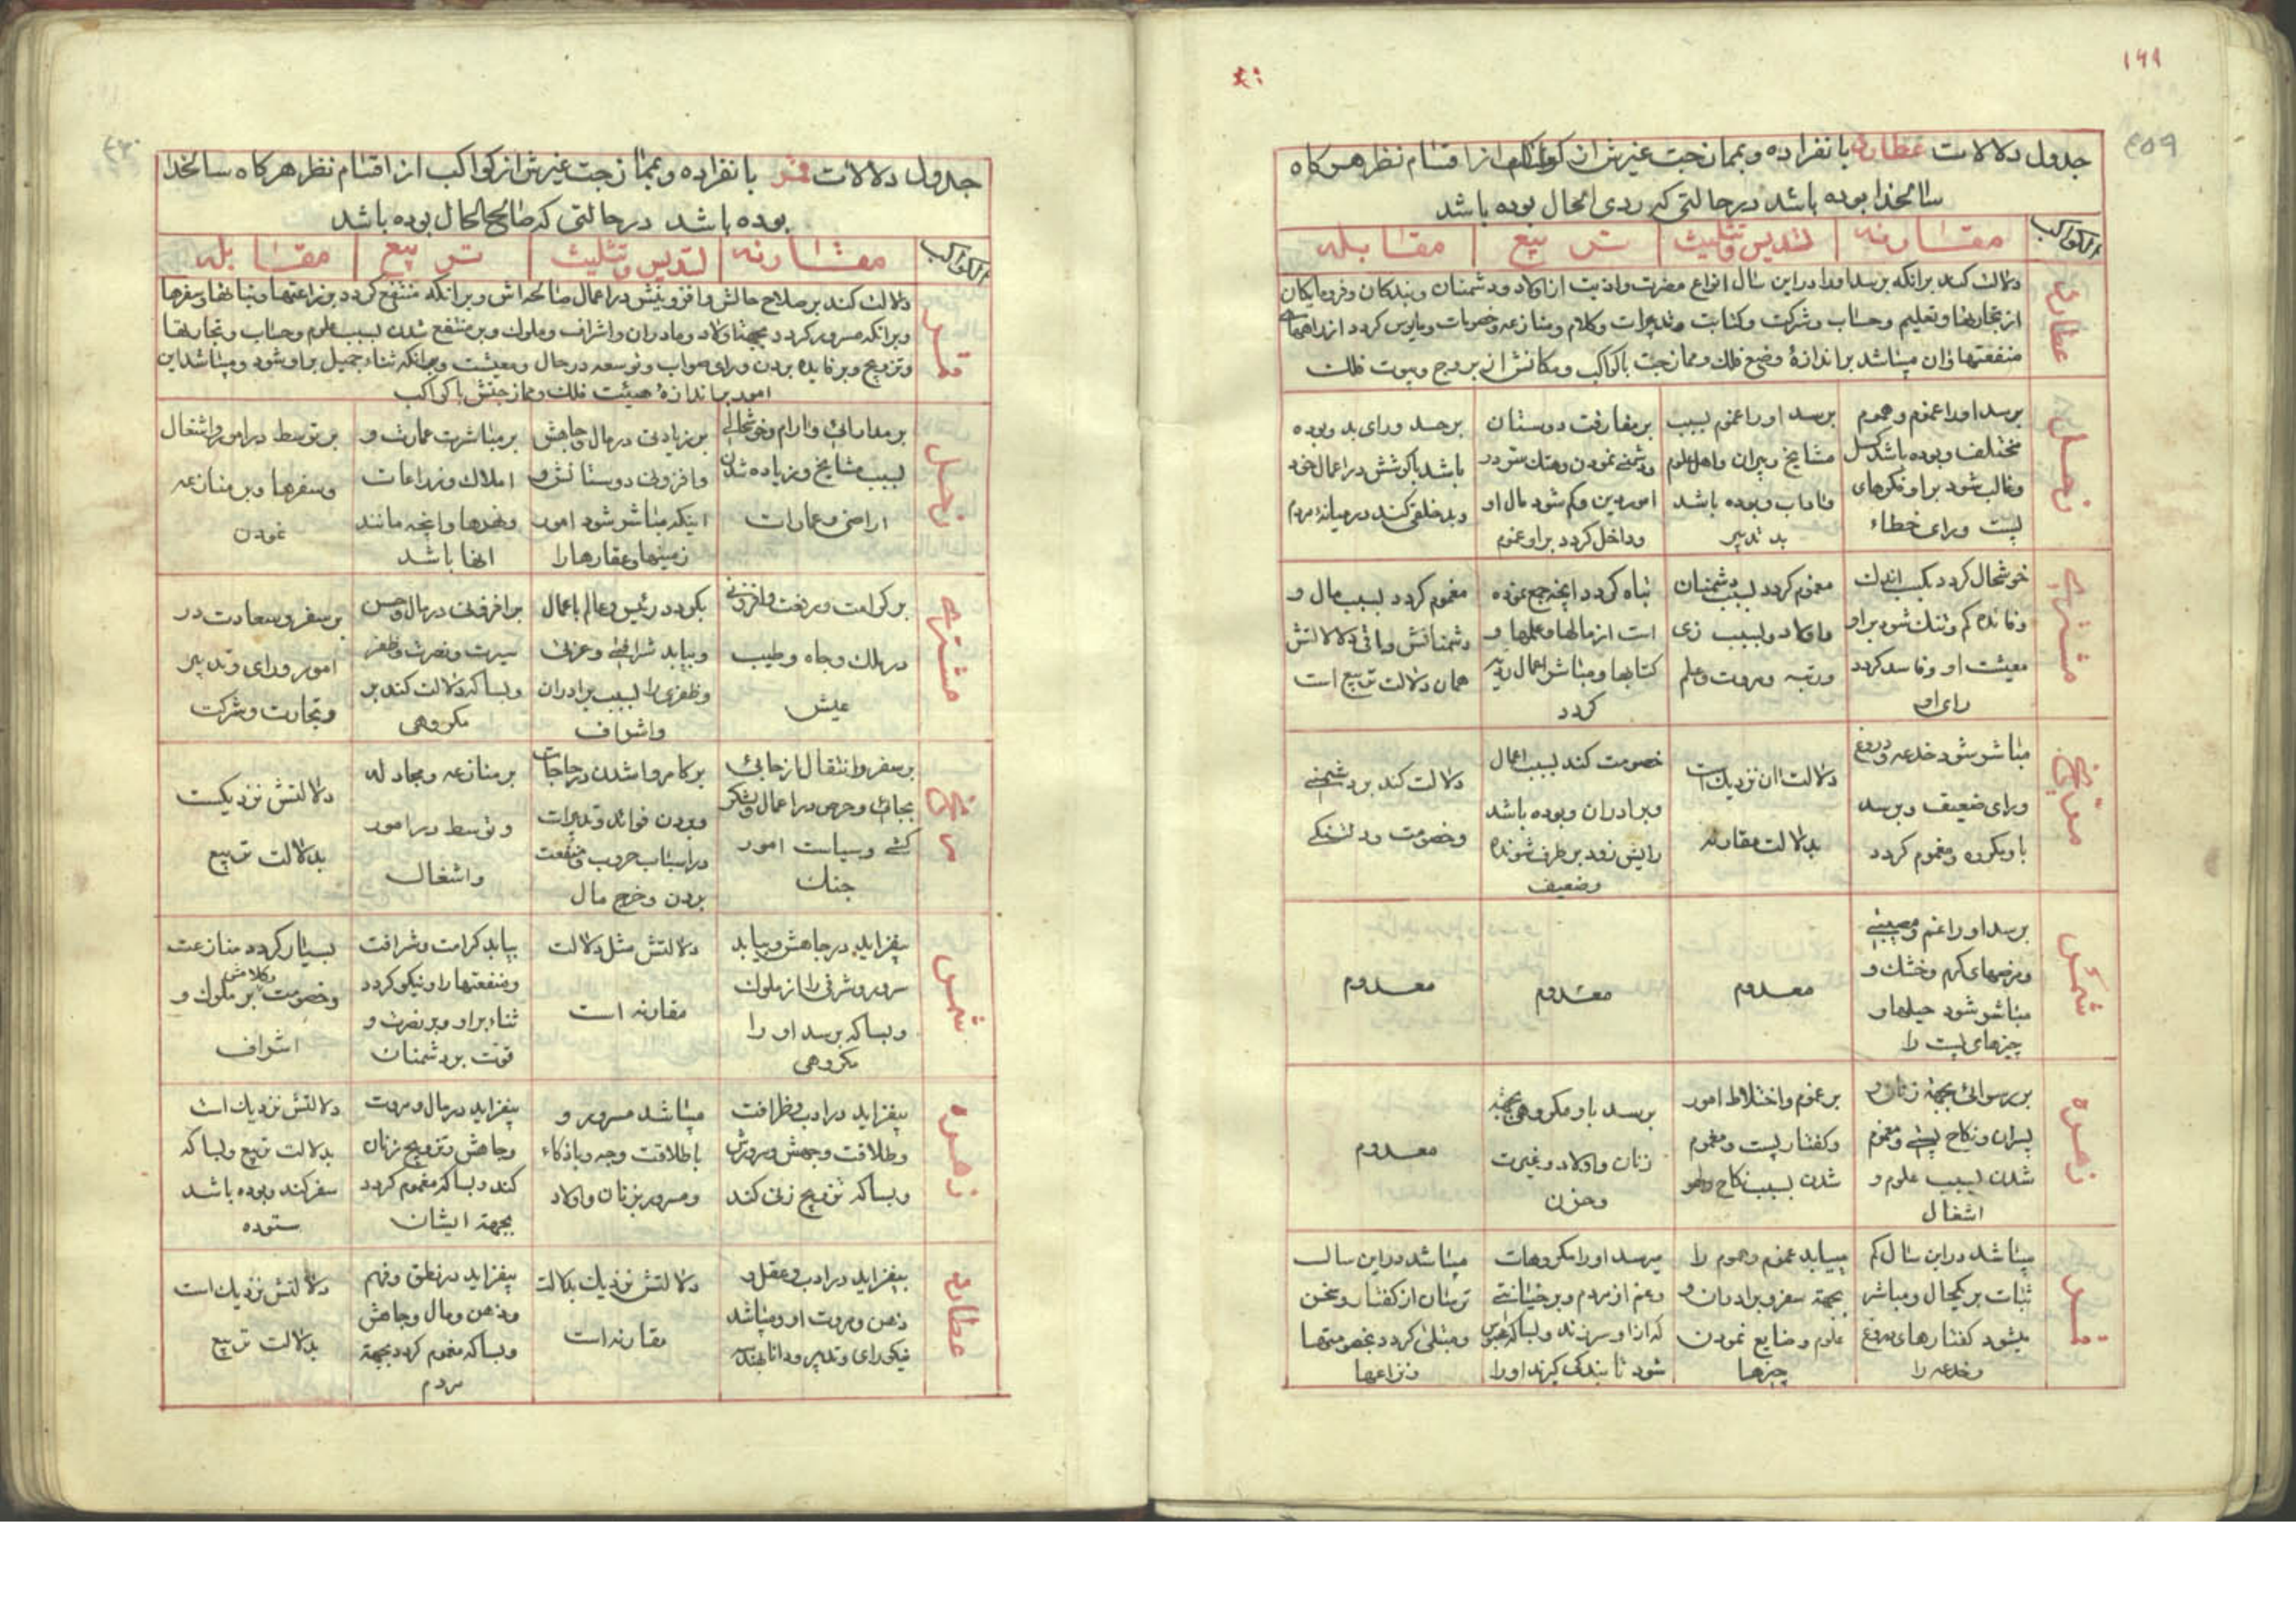 ۱۹۹
۴۵۹
جدول دلالات عطارد بانفراده و بممازجت غیرش از کواکب از اقسام نظر هر کاه
سالخدا بوده باشد در حالتی که ردی الحال بوده باشد
الکواکب
مقارنه
تسدیس و تثلیث
تربیع
مقابله
عطارد
دلالت کند برانکه برسد اورا در این سال انواع مضرت و اذیت از اولاد و دشمنان و بندکان و فرومایکان
از تجارتها و تعلیم و حساب و شرکت و کتابت و تدبیرات و کلام و منازعه و خصومات و مایوس کردد از
منفعتها و ان میباشد بر اندازهٔ وضع فلک و ممازجت با کواکب و مکانش از بروج و بیوت فلک
زحل
برسد اورا غموم و هموم
مختلف و بوده باشد کسل
و غالب شود بر او فکرهای
پست و رای خطاء
برسد او را غموم بسبب
مشایخ و پیران و اهل علوم
و اداب و بوده باشد
بد تدبیر
بر مفارقت دوستان
و دشمنی نمودن و هتک ستر در
امور دین و کم شود مال او
و داخل کردد بر او غموم
بر حسد و رای بد و بوده
باشد با کوشش در اعمال خود
و بد خلقی کند در میانهٔ مردم
مشتری
خوشحال کردد بکسب اندک
و فائده کم و تنک شود بر او
معیشت او و فاسد کردد
رای او
مغموم کردد بسبب دشمنان
و اولاد و بسبب زی
و رتبه و مروت و علم
تباه کردد انچه جمع نموده
است از مالها و علمها و
کتابها و مباشر اعمال ردیه
کردد
مغموم کردد بسبب مال و
دشمنانش و باقی دلالالتش
همان دلالت تربیع است
مریخ
مباشر شود خدعه و دروغ
و رای ضعیف و برسد
باو مکروه و مغموم کردد
دلالت ان نزدیک است
بدلالت مقارنه
خصومت کند بسبب اعمال
و برادران و بوده باشد
رایش زود بر طرف شونده
و ضعیف
دلالت کند بر دشمنی
و خصومت و دلتنکی
شمس
برسد او را غم و مصیبتی
و مرضهای کرم و خشک و
مباشر شود حیلها و
چیزهای پست را
معدوم
معدوم
معدوم
زهره
بر رسوائی بجهة زنان و
پسران و نکاح پستی و مغموم
شدن بسبب علوم و
اشغال
بر غموم و اختلاط امور
و کفتار پست و مغموم
شدن بسبب نکاح و لهو
برسد باو مکروهی بجهة
زنان و اولاد و غیرت
و حزن
معدوم
قمر
میباشد در این سال کم
ثبات بر یکحال و مباشر
میشود کفتارهای دروغ
و خدعه را
میابد غموم و هموم را
بجهة سفر و برادران و
علوم و ضایع نمودن
چیزها
میرسد اورا مکروهات
و غم از مردم و بر خیانتی
که از او سر زند و بسا که محبوس
شود تا بندکی کیرند او را
میباشد در این سال
ترسان از کفتار و سخن
و مبتلی کردد بخصومتها
و نزاعها
جدول دلالات قمر بانفراده و بممازجت غیرش از کواکب از اقسام نظر هر کاه سالخدا
بوده باشد در حالتی که صالح الحال بوده باشد
الکواکب
مقارنه
تسدیس و تثلیث
تربیع
مقابله
قمر
دلالت کند بر صلاح حالش و افزونیش در اعمال صالحه اش و برانکه منتفع کردد بزراعتها و نباتها و سفرها
و برانکه مسرور کردد بجهة اولاد و مادران و اشراف و ملوک و بر منتفع شدن بسبب علوم و حساب و تجارتها
و تزویج و بر فایده بردن و رای صواب و توسعه در حال و معیشت و برانکه ثناء جمیل بر او شود و میباشد این
امور بر اندازهٔ هیئت فلک و ممازجتش با کواکب
زحل
بر مدارائی و ارام و خوشحالی
بسبب مشایخ و زیاده شدن
اراضی و عمارات
بر زیادتی در مال و جاهش
و افزونی دوستانش و
اینکه مباشر شود امور
زمینها و عقارها را
بر مباشرت عمارت و
املاک و زراعات
و نهرها و انچه مانند
انها باشد
بر توسط در امور و اشغال
و سفرها و بر منازعه
نمودن
مشتری
بر کرامت و رفعت و افزونی
در ملک و جاه و طیب
عیش
بکردد رئیس و عالم باعمال
و بیابد شرافتی و عزتی
و ظفری را بسبب برادران
و اشراف
بر افزونی در مال و حسن
سیرت و نصرت و ظفر
و بسا که دلالت کند بر
مکروهی
بر سفر و سعادت در
امور و رای و تدبیر
و تجارت و شرکت
مریخ
بر سفر و انتقال از جائی
بجائی و حرص در اعمال و لشکر
کشی و سیاست امور
جنک
بر کامروا شدن در حاجات
و بردن فوائد و تدبیرات
در اسباب حروب و منفعت
بردن و خرج مال
بر منازعه و مجادله
و توسط در امور
و اشغال
دلالتش نزدیکست
بدلالت تربیع
شمس
بیفزاید در جاهش و بیابد
سرور و شرفی را از ملوک
و بسا که برسد او را
مکروهی
دلالتش مثل دلالت
مقارنه است
بیابد کرامت و شرافت
و منفعتها را و نیکو کردد
ثناء بر او و بر نصرت و
قوت بر دشمنان
بسیار کردد منازعت
و کلامش
و خصومت بر ملوک و
اشراف
زهره
بیفزاید در ادب و ظرافت
و طلاقت وجهش و سرورش
و بسا که تزویج زنی کند
میباشد مسرور و
باطلاقت وجه و باذکاء
و مسرور بزنان و اولاد
بیفزاید در مال و مروت
و جاهش و تزویج زنان
کند و بسا که مغموم کردد
بجهة ایشان
دلالتش نزدیک است
بدلالت تربیع و بسا که
سفر کند و بوده باشد
ستوده
عطارد
بیفزاید در ادب و عقل و
ذهن و مروت او و میباشد
نیکو رای و تدبیر و دانا بهندسه
دلالتش نزدیک بدلالت
مقارنه است
بیفزاید در نطق و فهم
و ذهن و مال و جاهش
و بسا که مغموم کردد بجهة
مردم
دلالتش نزدیک است
بدلالت تربیع